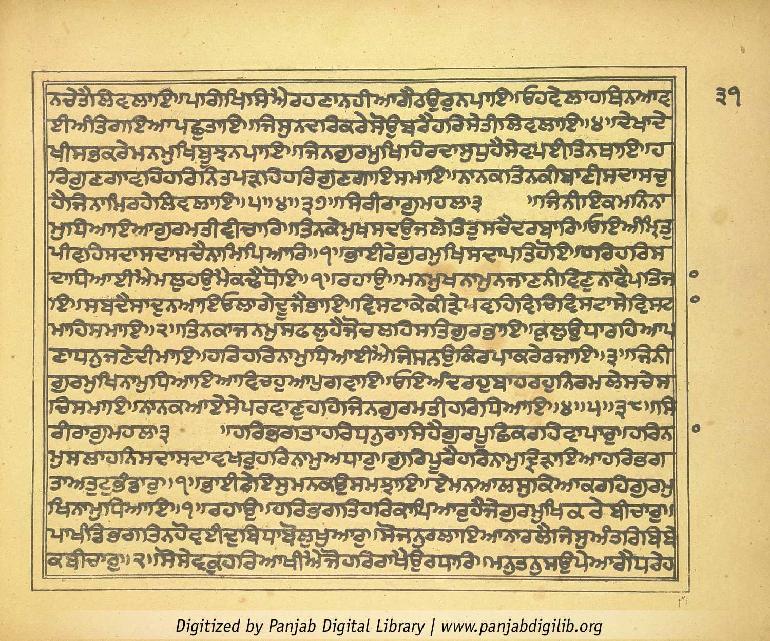 ਨਚੇਤੈਲਿਵਲਾਇ॥ਪਗਿਖਿਸਿਐਰਹਣਾਨਹੀਆਗੈਠਉਰੁਨਪਾਇ॥ਓਹਵੇਲਾਹਥਿਨਆਵ
ਈਅੰਤਿਗਇਆਪਛੁਤਾਇ॥ਜਿਸੁਨਦਰਿਕਰੇਸੋਉਬਰੈਹਰਿਸੇਤੀਲਿਵਲਾਇ॥੪॥ਦੇਖਾਦੇ
ਖੀਸਭਕਰੇਮਨਮੁਖਿਬੂਝਨਪਾਇ॥ਜਿਨਗੁਰਮੁਖਿਹਿਰਦਾਸੁਧੁਹੈਸੇਵਪਈਤਿਨਥਾਇ॥ਹ
ਰਿਗੁਣਗਾਵਹਿਹਰਿਨਿਤਪੜਹਿਹਰਿਗੁਣਗਾਇਸਮਾਇ॥ਨਾਨਕਤਿਨਕੀਬਾਣੀਸਦਾਸਚੁ
ਹੈਜਿਨਾਮਿਰਹੇਲਿਵਲਾਇ॥੫॥੪॥੩੭॥ਸਿਰੀਰਾਗੁਮਹਲਾ੩ ॥ਜਿਨੀਇਕਮਨਿਨਾ
ਮੁਧਿਆਇਆਗੁਰਮਤੀਵੀਚਾਰਿ॥ਤਿਨਕੇਮੁਖਸਦਉਜਲੇਤਿਤੁਸਚੈਦਰਬਾਰਿ॥ਓਇਅੰਮ੍ਰਿਤੁ
ਪੀਵਹਿਸਦਾਸਦਾਸਚੈਨਾਮਿਪਿਆਰਿ॥੧॥ਭਾਈਰੇਗੁਰਮੁਖਿਸਦਾਪਤਿਹੋਇ॥ਹਰਿਹਰਿਸ
ਦਾਧਿਆਈਐਮਲੁਹਉਮੈਕਢੈਧੋਇ॥੧॥ਰਹਾਉ॥ਮਨਮੁਖਨਾਮੁਨਜਾਣਨੀਵਿਣੁਨਾਵੈਪਤਿਜ
ਾਇ॥ਸਬਦੈਸਾਦੁਨਆਇਓਲਾਗੇਦੂਜੈਭਾਇ॥ਵਿਸਟਾਕੇਕੀੜੇਪਵਹਿਵਿਚਿਵਿਸਟਾਸੇਵਿਸਟ
ਾਮਾਹਿਸਮਾਇ॥੨॥ਤਿਨਕਾਜਨਮੁਸਫਲੁਹੈਜੋਚਲਹਿਸਤਿਗੁਰਭਾਇ॥ਕੁਲੁਉਧਾਰਹਿਆਪ
ਣਾਧਨੁਜਣੇਦੀਮਾਇ॥ਹਰਿਹਰਿਨਾਮੁਧਿਆਈਐਜਿਸਨਉਕਿਰਪਾਕਰੇਰਜਾਇ॥੩॥ਜਿਨੀ
ਗੁਰਮੁਖਿਨਾਮੁਧਿਆਇਆਵਿਚਹੁਆਪੁਗਵਾਇ॥ਓਇਅੰਦਰਹੁਬਾਹਰਹੁਨਿਰਮਲੇਸਚੇਸ
ਚਿਸਮਾਇ॥ਨਾਨਕਆਏਸੇਪਰਵਾਣੁਹਹਿਜਿਨਗੁਰਮਤੀਹਰਿਧਿਆਇ॥੪॥੫॥੩੮॥ਸਿ
ਰੀਰਾਗੁਮਹਲਾ੩ ॥ਹਰਿਭਗਤਾਹਰਿਧਨੁਰਾਸਿਹੈਗੁਰਪੂਛਿਕਰਹਿਵਾਪਾਰੁ॥ਹਰਿਨ
ਮੁਸਲਾਹਨਿਸਦਾਸਦਾਵਖਰੁਹਰਿਨਾਮੁਅਧਾਰੁ॥ਗੁਰਿਪੂਰੈਹਰਿਨਾਮੁਦ੍ਰਿੜਾਇਆਹਰਿਭਗ
ਤਾਅਤੁਟੁਭੰਡਾਰੁ॥੧॥ਭਾਈਰੇਇਸੁਮਨਕਉਸਮਝਾਇ॥ਏਮਨਆਲਸੁਕਿਆਕਰਹਿਗੁਰਮੁ
ਖਿਨਾਮੁਧਿਆਇ॥੧॥ਰਹਾਉ॥ਹਰਿਭਗਤਿਹਰਿਕਾਪਿਆਰੁਹੈਜੇਗੁਰਮੁਖਿਕਰੇਬੀਚਾਰੁ॥
ਪਾਖੰਡਿਭਗਤਿਨਹੋਵਈਦੁਬਿਧਾਬੋਲੁਖੁਆਰੁ॥ਸੋਜਨੁਰਲਾਇਆਨਾਰਲੈਜਿਸੁਅੰਤਰਿਬਿਬੇ
ਕਬੀਚਾਰੁ॥੨॥ਸੋਸੇਵਕੁਹਰਿਆਖੀਐਜੋਹਰਿਰਾਖੈਉਰਿਧਾਰਿ॥ਮਨੁਤਨੁਸਉਪੇਆਗੈਧਰੇਹ
੩੧
Digitized by Panjab Digital Library | www.panjabdigilib.org